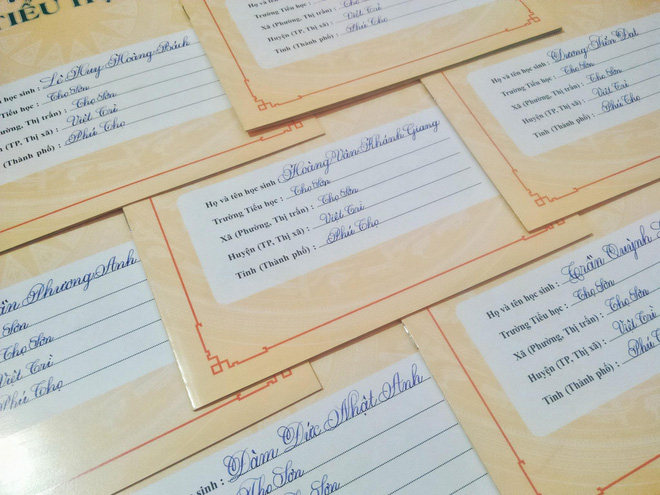 TIỂU H
tên học sinh : Lê Huy Hoàng Bách
Tiểu học : Thọ Sơn
(Phường, Thị trấn) : Thọ Sơn
Huyện (TP, Thị xã) : Việt Trì
(Thành phố) : Phú Thọ
Họ và tên học sinh :
Trường Tiểu học :
Xã (Phường, Thị trấn) : Thọ Sơn
Huyện (TP, Thị xã) : Việt Trì
Tỉnh (Thành phố) : Phú Thọ
Họ và tên học sinh : Dương Tiến Đạt
Trường Tiểu học : Thọ Sơn
Xã (Phường, Thị trấn) : Thọ Sơn
Huyện (TP, Thị xã) : Việt Trì
Tỉnh (Thành phố) : Phú Thọ
Họ và tên học sinh : Hoàng Vân Khánh Giang
Trường Tiểu học : Thọ Sơn
Xã (Phường, Thị trấn) : Thọ Sơn
Huyện (TP, Thị xã) : Việt Trì
Tỉnh (Thành phố) : Phú Thọ
Phương Anh
Sơn
Thọ Sơn
Việt Trì
Phú Thọ
Họ và tên học sinh : Trần Quỳnh
Trường Tiểu học : Thọ Sơn
Xã (Phường, Thị trấn) : Thọ Sơn
Huyện (TP, Thị xã) : Việt Trì
Tỉnh (Thành phố) : Phú
sinh : Đàm Đức Nhật Anh
Thọ Sơn